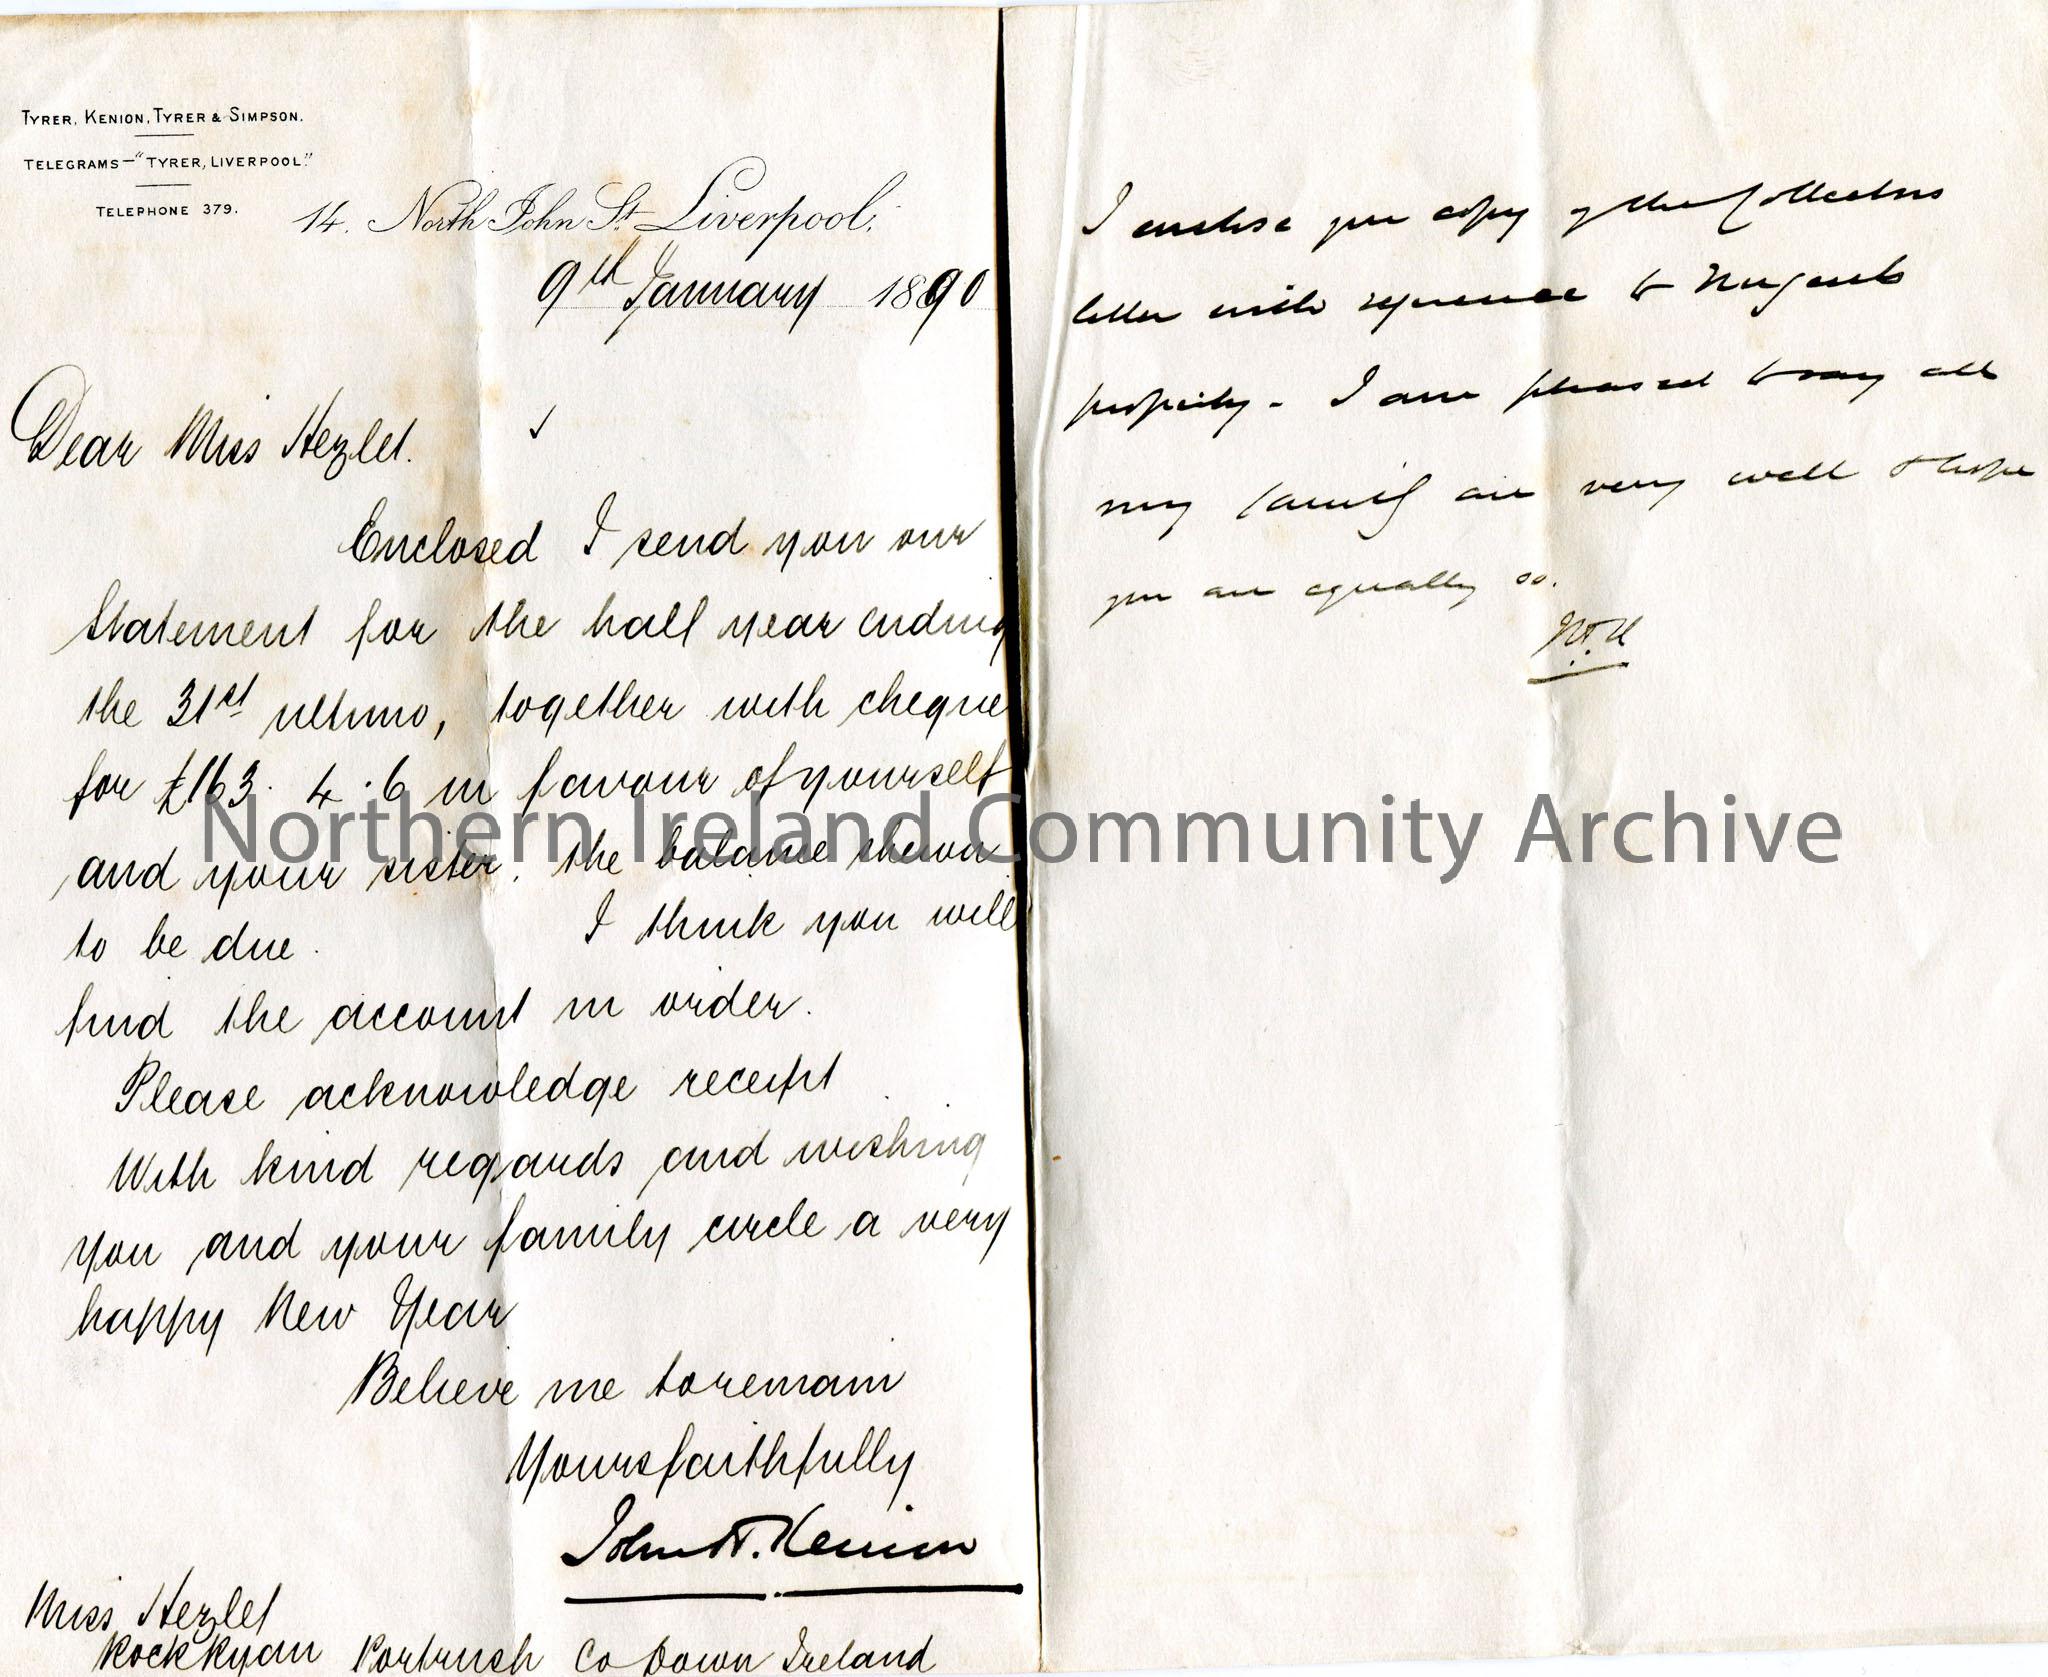 TYRER, KENION, TYRER & SIMPSON.
TELEGRAMS—"TYRER, LIVERPOOL."
TELEPHONE 379.
14. North John St. Liverpool,
9th January 1890
Dear Miss Hezlet.
Enclosed I send you our
Statement for the half year ending
the 31st ultimo, together with cheque
for £163. 4. 6 in favour of yourself
and your sister, the balance shewn
to be due. I think you will
find the account in order.
Please acknowledge receipt
With kind regards and wishing
you and your family circle a very
happy New Year
Believe me to remain
Yours faithfully
John H. Kenion
Miss Hezlet
Rock Ryan Portrush Co Down Ireland
I enclose you copy of the Collectors
letter with reference to Nugents
property - I am pleased to say all
my family are very well & hope
you are equally so.
Northern Ireland Community Archive